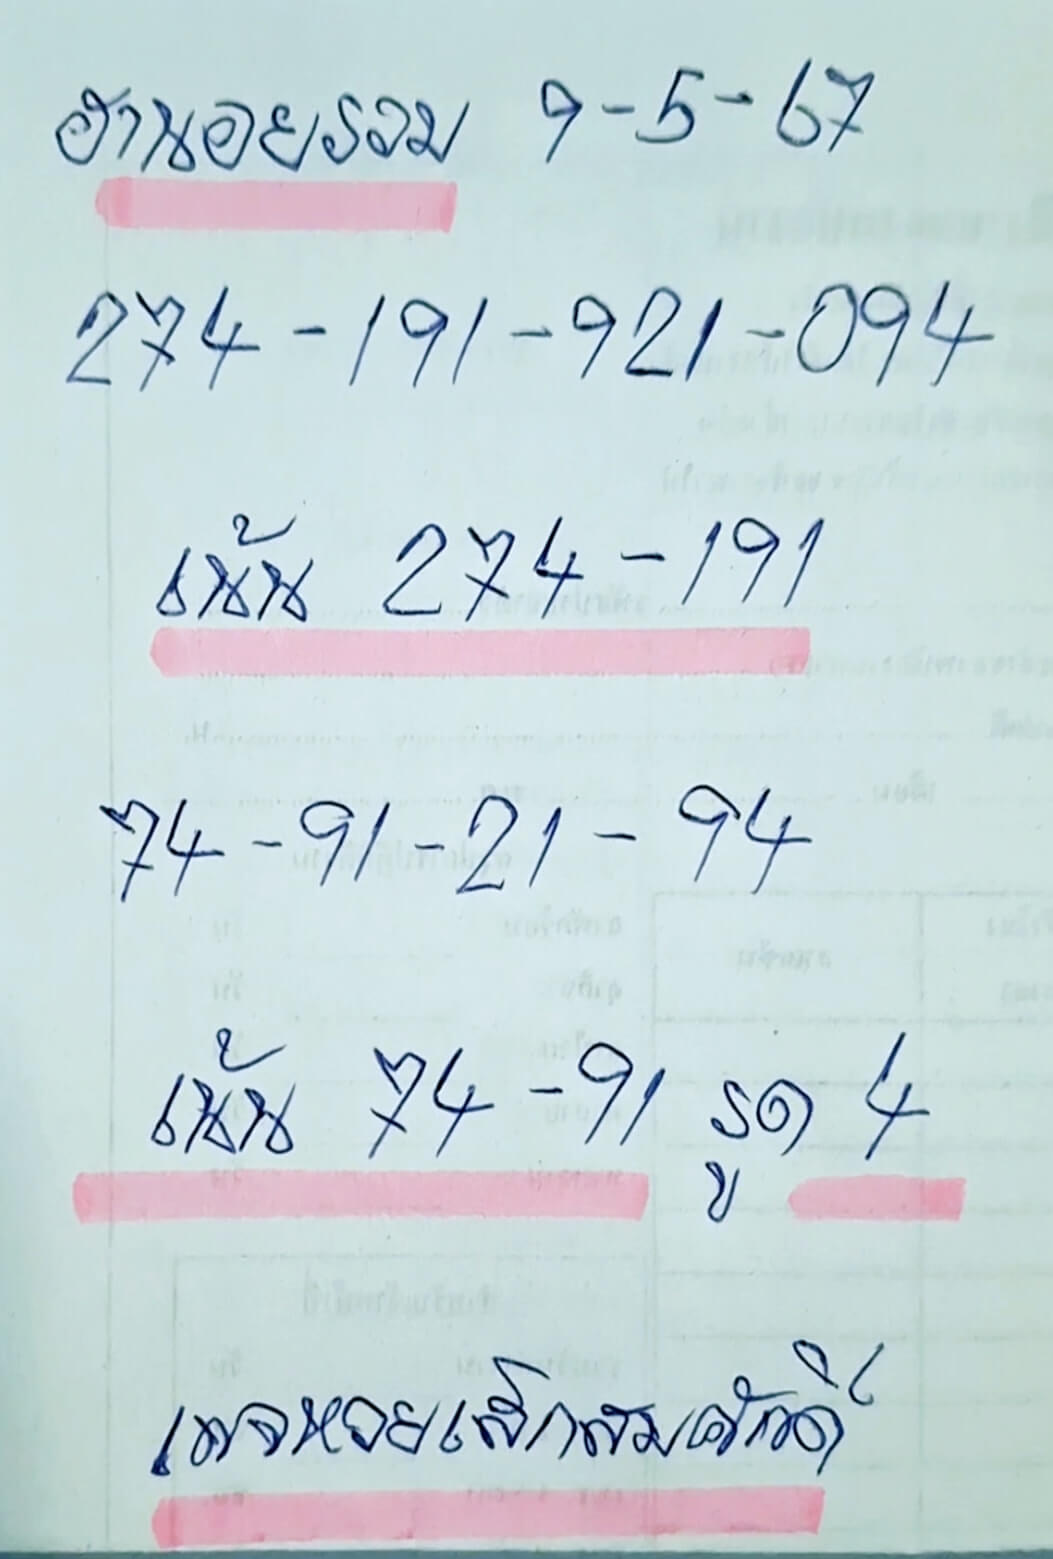 ฮานอยรวม 9-5-67
274-191-921-094
เน้น 274-191
74-91-21-94
เน้น 74-91 รูด 4
เพจหวยเสี่กสมศักดิ์